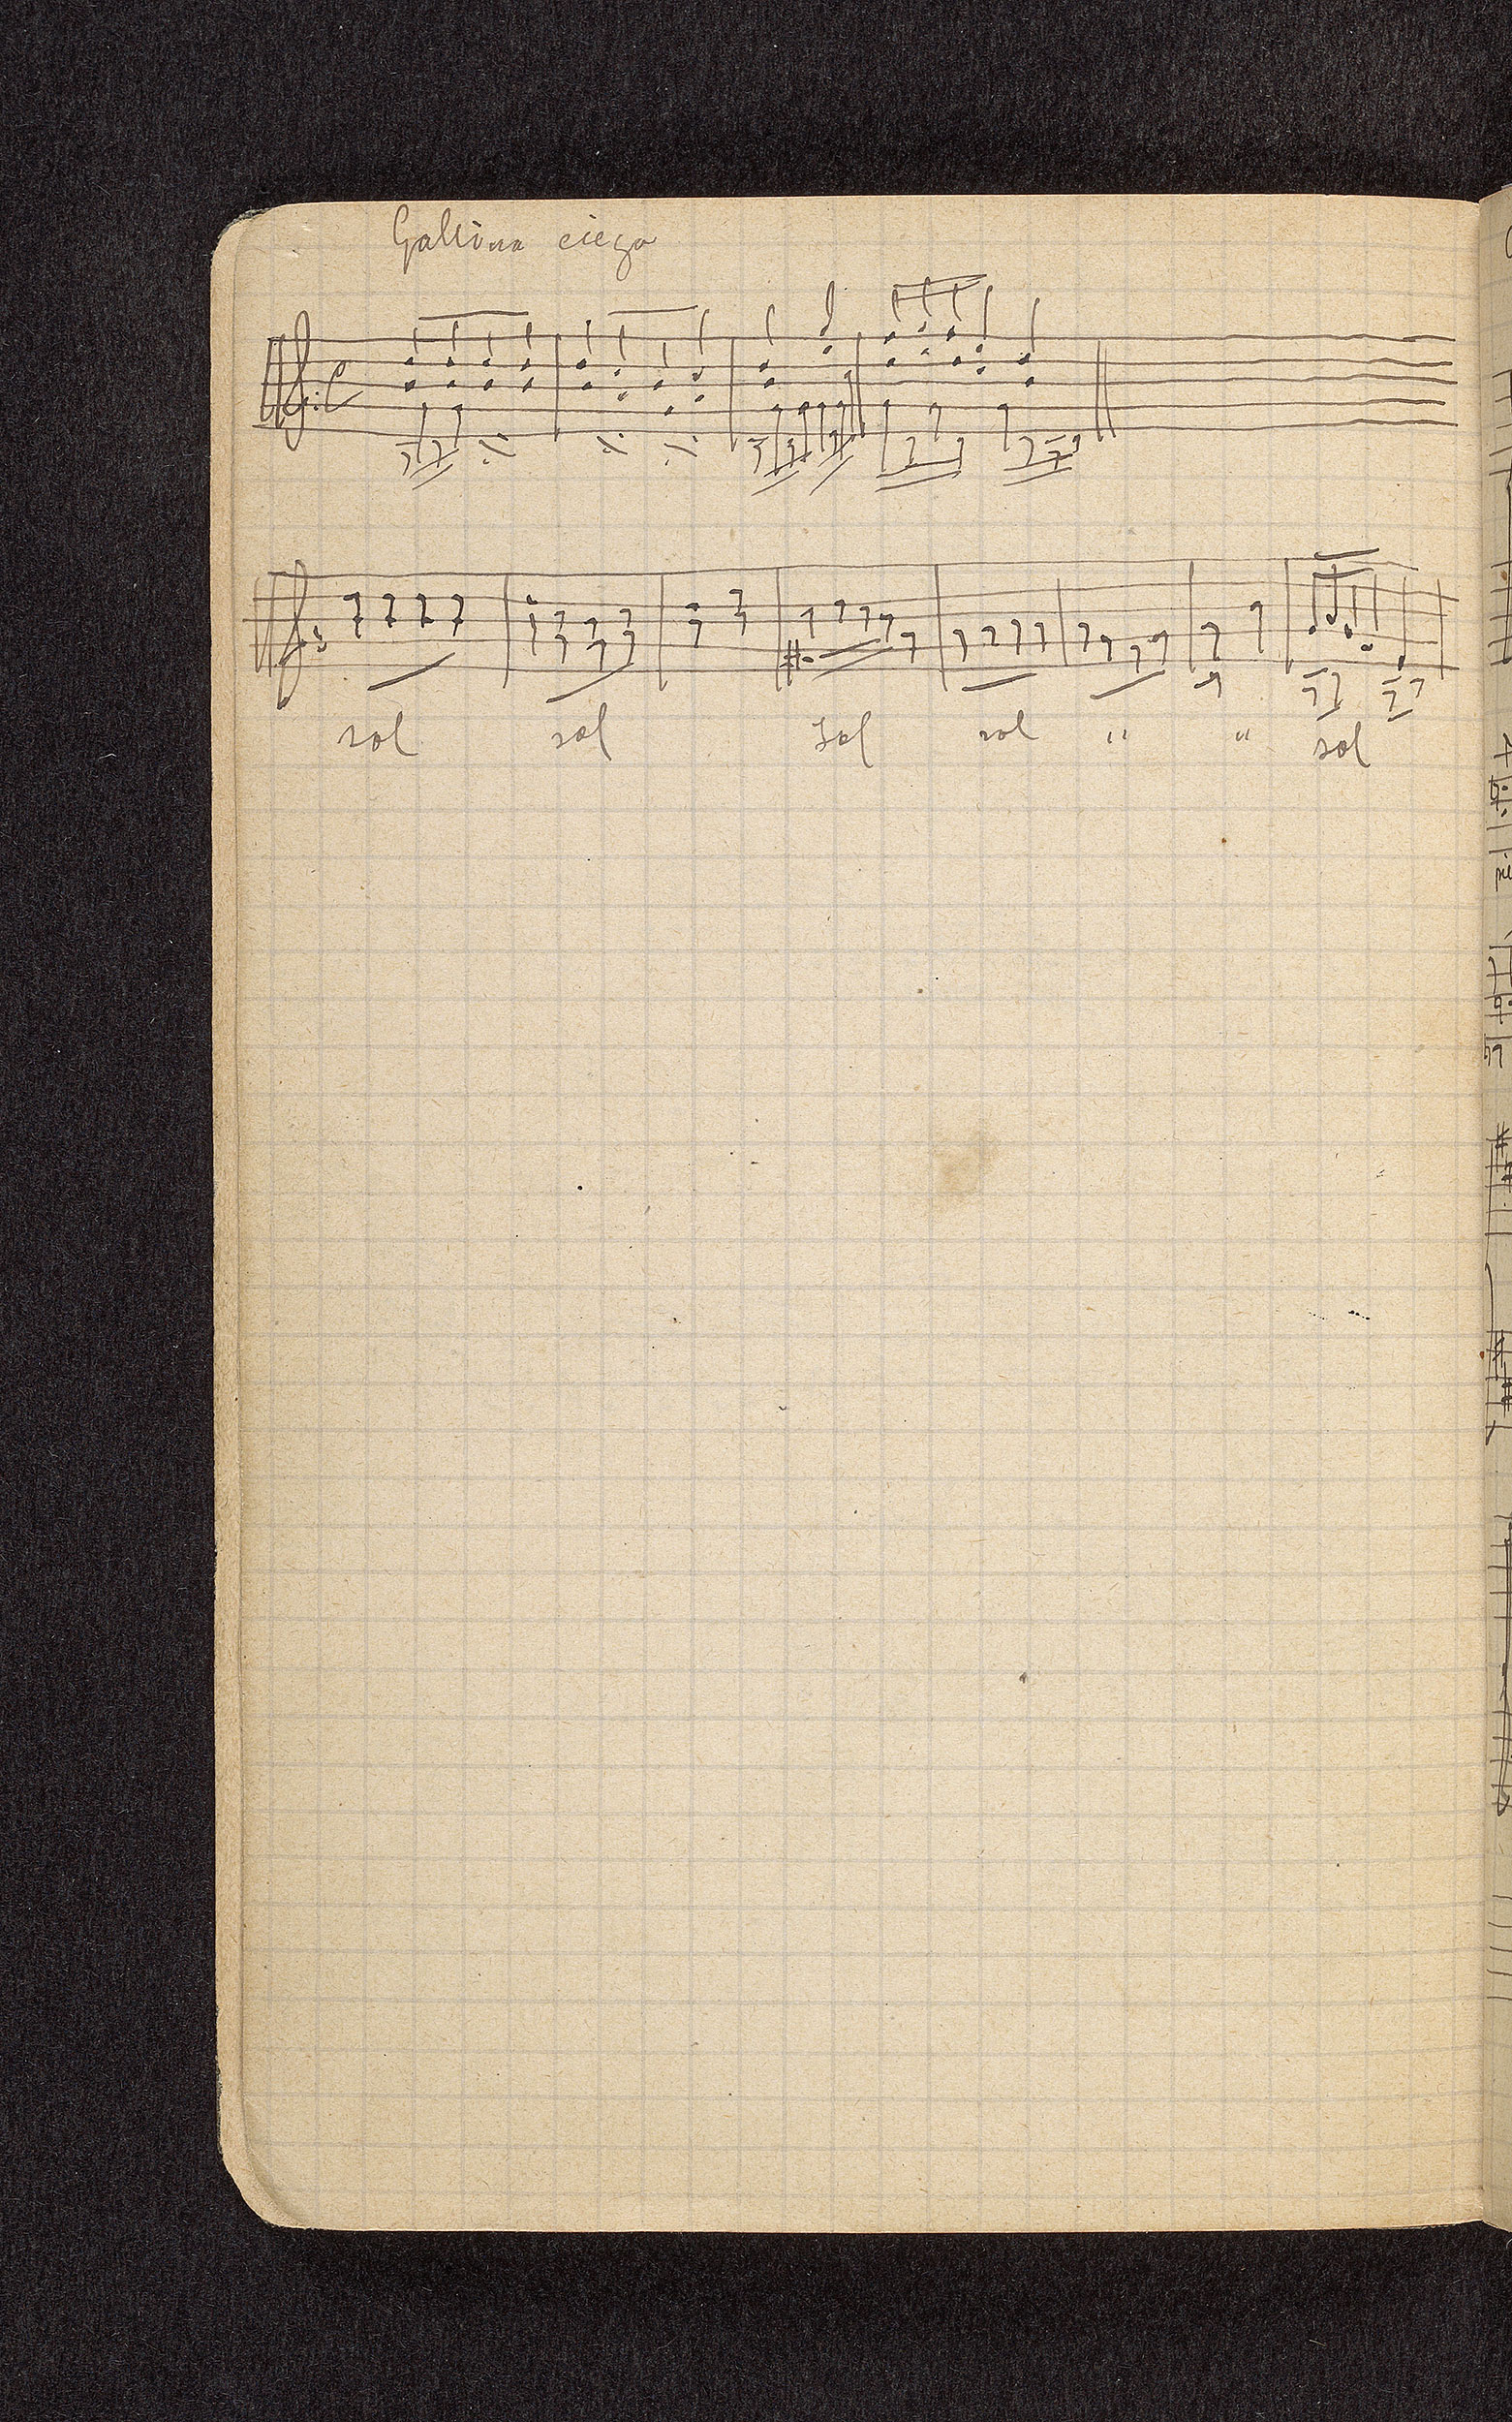 Gallina ciega
sol sol sol sol " " sol